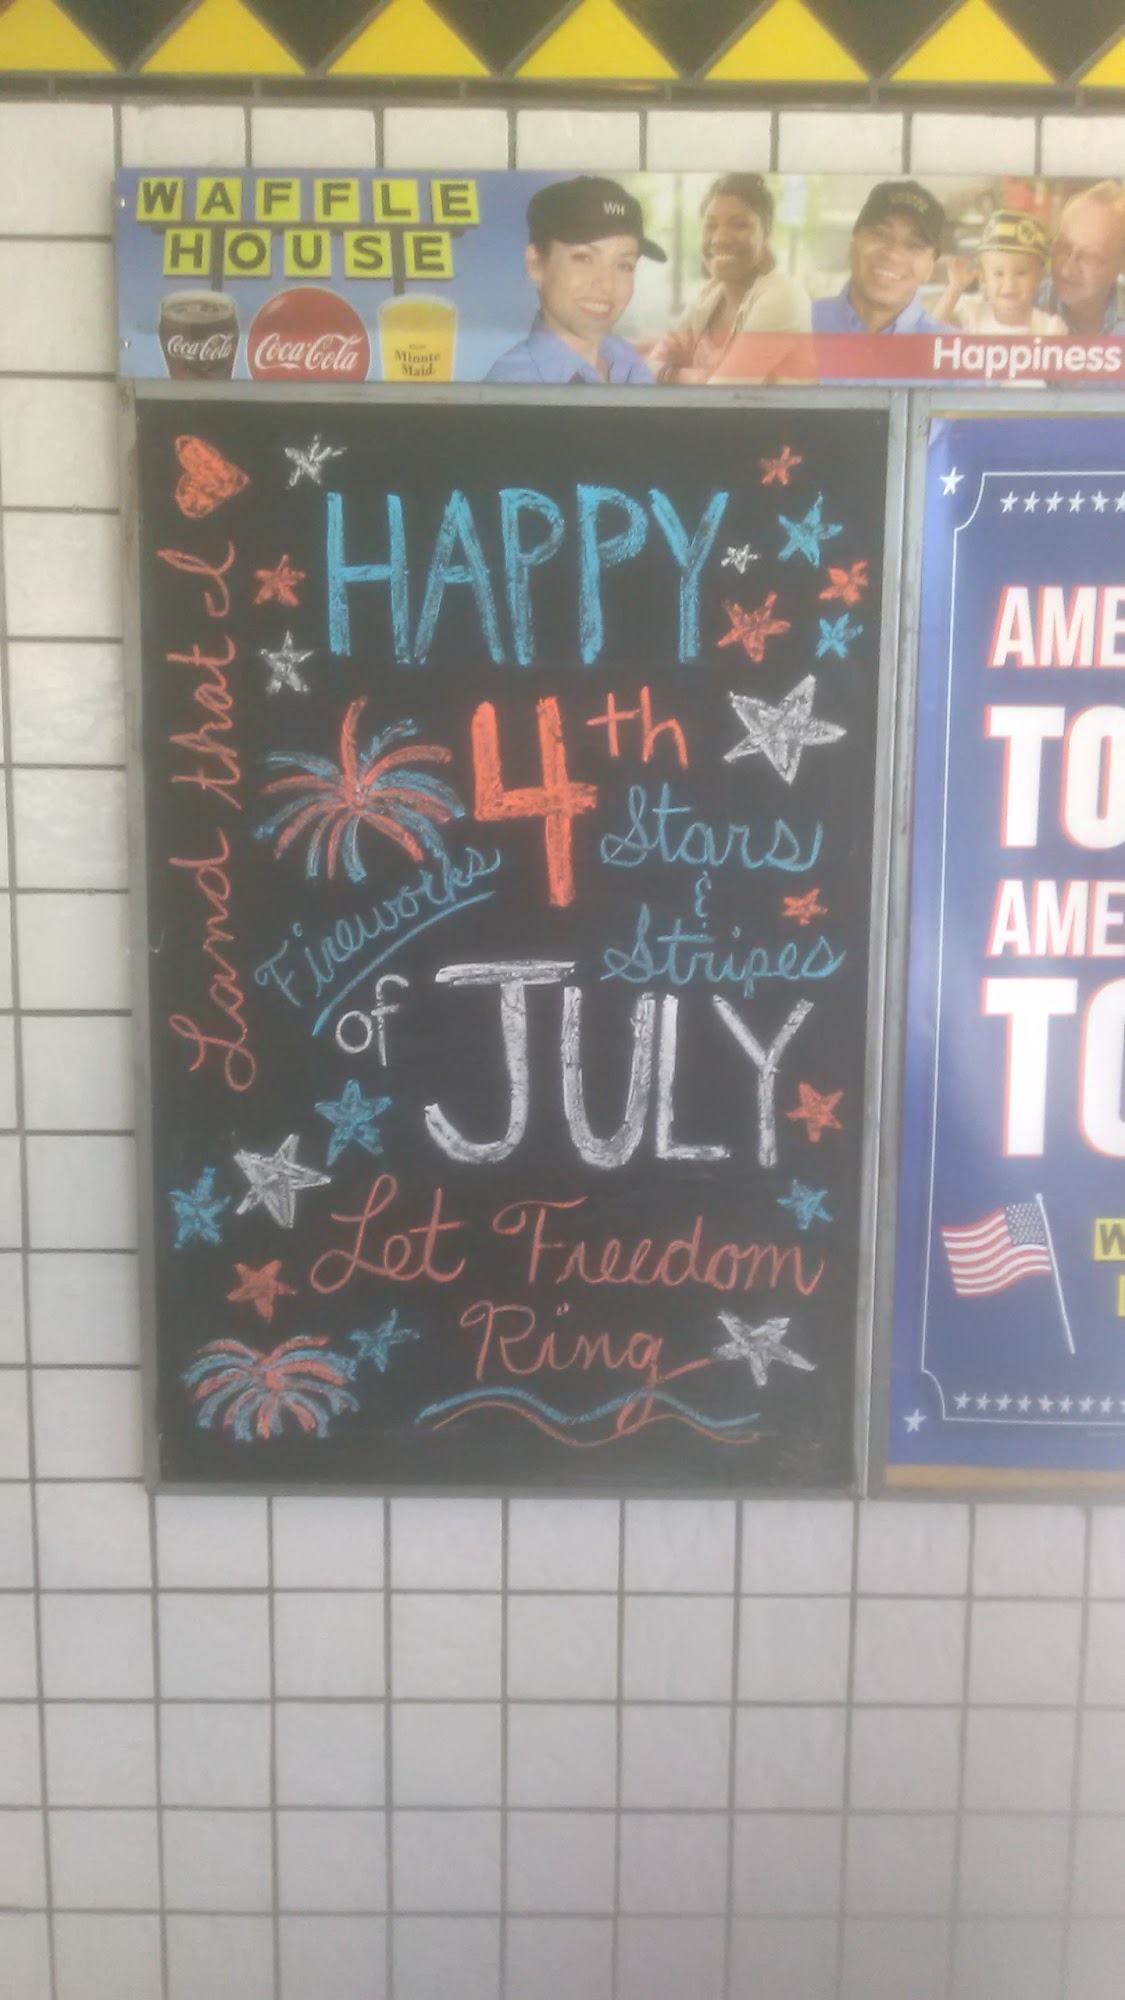 WAFFLE
HOUSE
Coca-Cola
Coca-Cola
Minute
Maid
WH
Happiness
Land that I
HAPPY
4th
Stars
&
Stripes
Fireworks
of JULY
Let Freedom
Ring
AME
TO
AME
TO
W